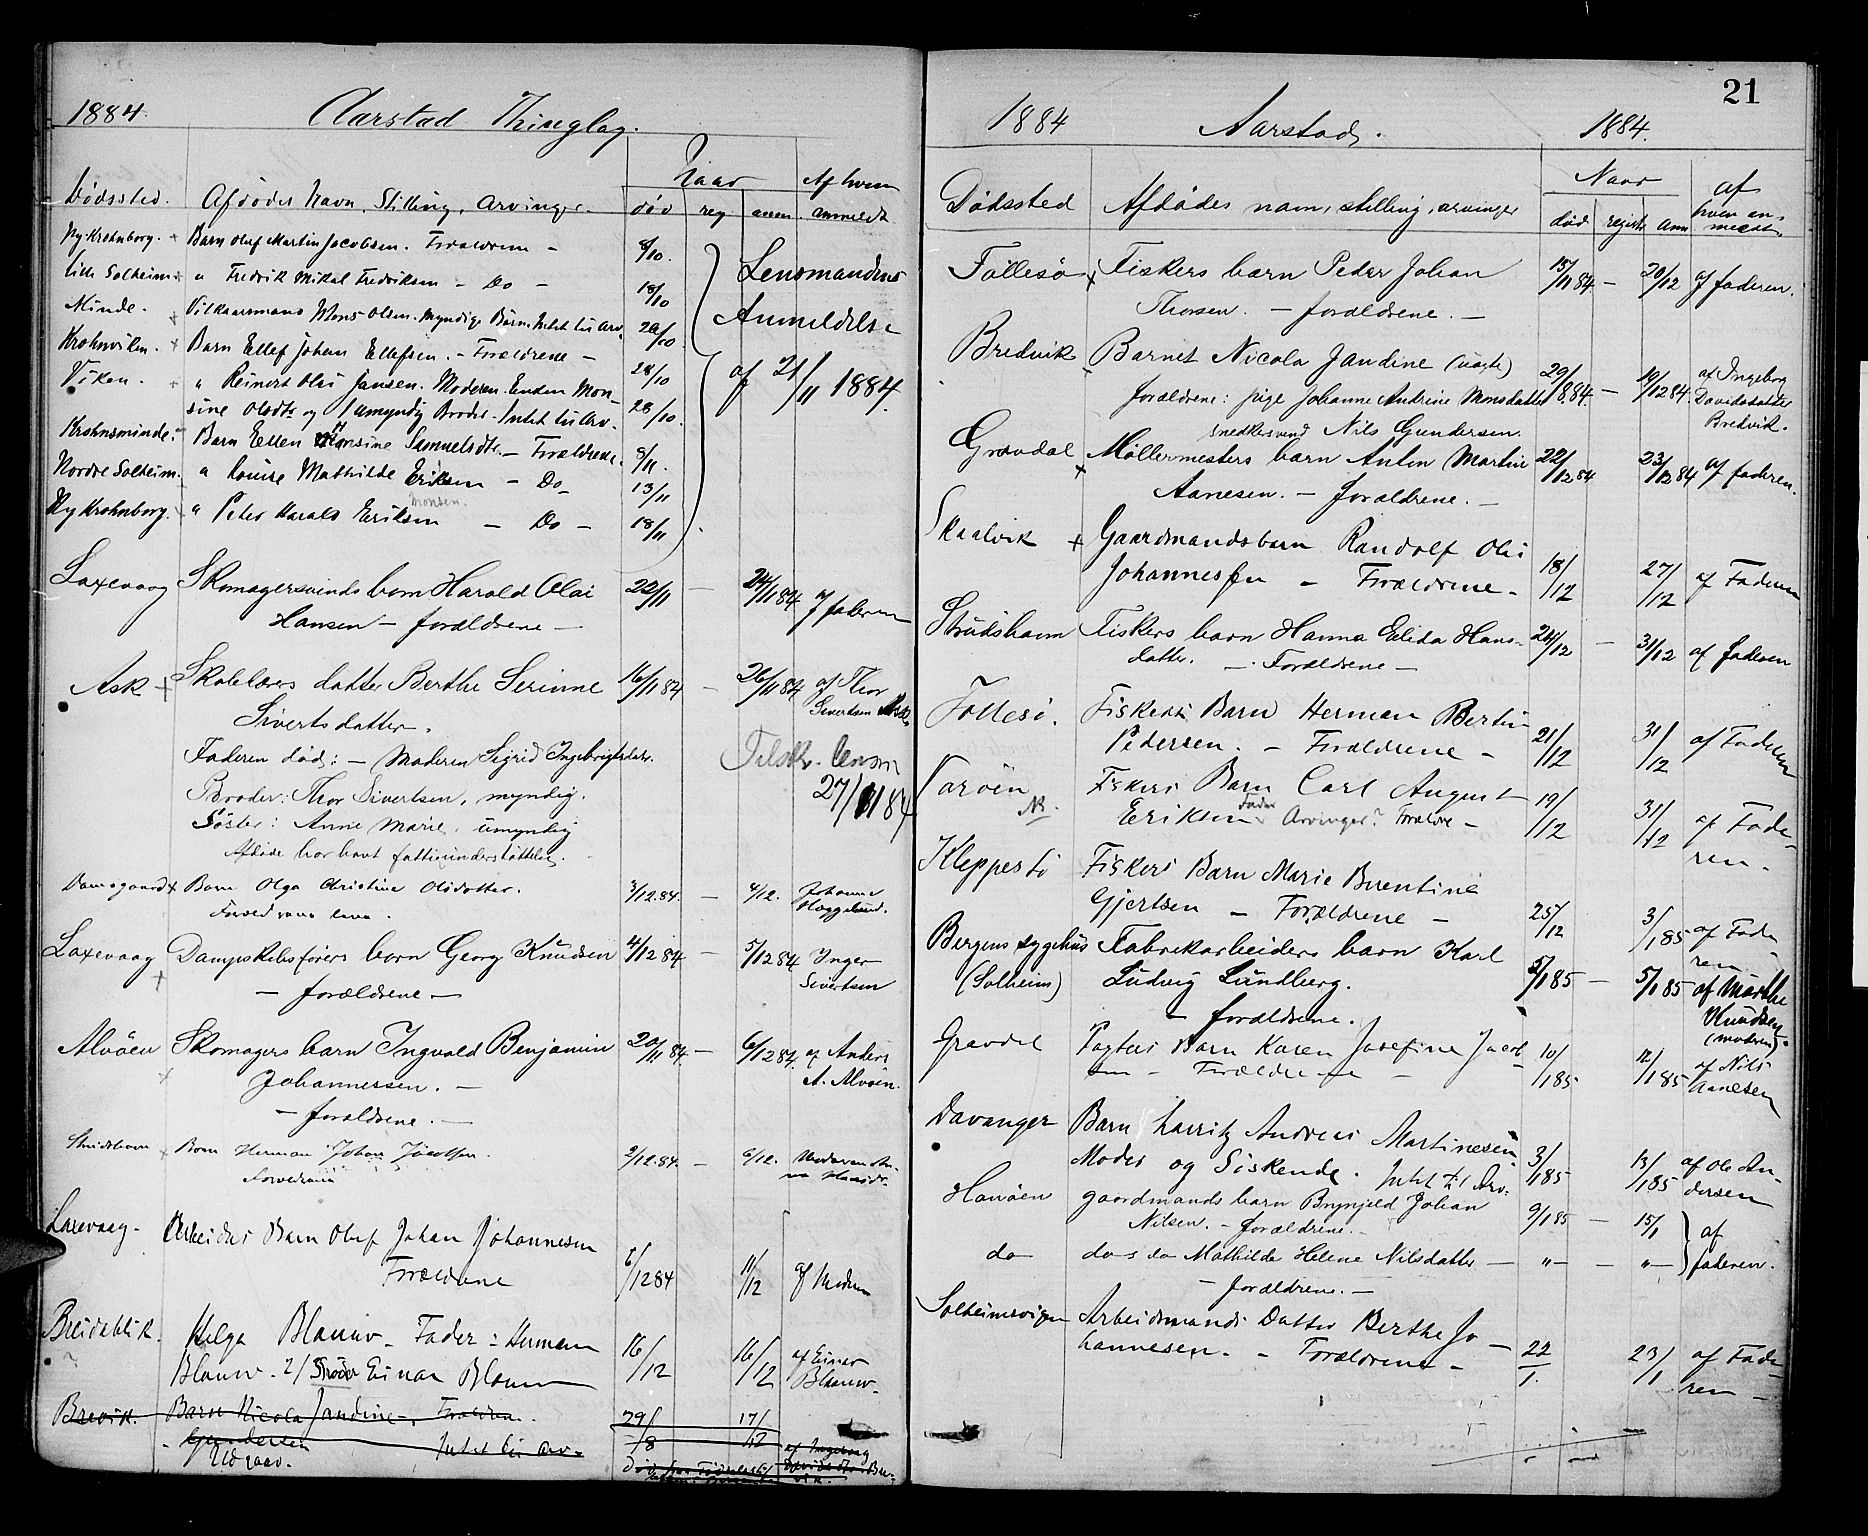 1884. Aarstad Thinglag.
Naar Af hvem
Dødssted. Afdødes Navn, Stilling, Arvinger. død reg anm. anmeldt
Ny Krohnborg. + Barn Oluf Martin Jacobsen. Forældrene - 8/10.
Lille Solheim + " Fredrik Mikal Fredriksen - Do - 18/10 Lensmandens
Minde. + Vilkaarsmand Mons Olsen. myndige Børn. Intet til Arv. 20/10 Anmeldelse
Krohnviken. + Barn Ellef Johan Ellefsen. - Forældrene - 28/10
Viken. + " Reinert Olai Jansen. Moderen Enken Mon- af 21/11 1884.
sine Olsdtr og 1 umyndig Broder - Intet til Arv - 28/10.
Krohnsminde. Barn Ellen Monsine Samuelsdtr. - Forældrene. 8/11.
Nordre Solheim. " Louise Mathilde Eriksen - Do - 13/11
Monsen.
Ny Krohnborg. " Peter Harald Eriksen - Do - 18/11
Laxevaag Skomagersvends barn Harald Olai 22/11 - 24/11 84 af faderen
Hansen - forældrene -
Ask + Skolelærers datter Berthe Serine 16/11 84 - 26/11 84 af Thor
Sivertsdatter. Sivertsen Ask
Faderen død: - Moderen Sigrid Ingebrigtsdatr.
Broder: Thor Sivertsen, myndig. 27/11 84
Søster: Anne Marie, umyndig
Afdøde har havt fattigunderstøttelse.
Damsgaard + Barn Olga Christine Olsdatter. 3/12.84. - 4/12. Johanne
Forældrene leve. Haggelund.
Laxevaag + Dampskibsførers barn Georg Knudsen 4/12 84 - 5/12 84 Inger
- forældrene - Sivertsen
Alvøen + Skomagers barn Ingvald Benjamin 20/11 84 - 6/12 84. af Anders
Johannessen. - A. Alvøen.
- forældrene. -
Strudshavn + Barn Herman Johan Jacobsen. 2/12.84. - 6/12. Moderen An-
Forældrene na Hansdr.
Laxevaag. Arbeiders Barn Oluf Johan Johannesen
Forældrene 6/12 84 11/12 af Moderen
Breidablik. Helga Blauuw - Fader: Herman 16/12 16/12 af Einar
Blauuw. 2/ Broder Einar Blauuw Blaauw.
Brevik. Barn Nicola Jandine -, Forældrene. 29/8 17/12
Gundersen Intet til Arv - af Ingeborg
Udgaar. Davidsdtr Bre-
vik.
21
1884 Aarstad. 1884.
Naar af
Dødssted Afdødes navn, stilling, arvinger død registr. anm hvem an-
meldt.
Follesø + Fiskers barn Peder Johan 15/11 84 - 20/12 af faderen.
Thorsen. - forældrene. -
Bredvik Barnet Nicola Jandine (uægte) 29/8.84. - 19/12 84. af Ingeborg
forældrene: pige Johanne Andrine Monsdatter Davidsdatter
snedkersvend Nils Gundersen. Bredvik.
Gravdal + Møllermesters barn Anton Martin 22/12 84 23/12 84 af faderen.
Aanesen. - forældrene. -
Skaalvik + Gaardmandsbarn Randolf Olai
Johannessen - Forældrene - 18/12 27/12 af Faderen
Strudshavn Fiskers barn Hanna Elida Hans- 24/12 - 31/12 af faderen
datter. - Forældrene -
Follesø. Fiskers Barn Herman Bertin
Pedersen. - Forældrene - 21/12 31/12 af Faderen
Fiskers Barn Carl August
NB. Eriksen Fader Arvinger? Forældre - 19/12 31/12 af Fade-
ren -
Kleppestø Fiskers Barn Marie Berentine
Gjertsen - Forældrene - 25/12 3/1 85 af Fade
ren
Bergens sygehus Fabrikarbeiders barn Karl
(Solheim) Ludvig Lundberg. 5/1 85 - 5/1 85 af Marthe
- forældrene. Knudsen
(moderen).
Gravdal Pagters Barn Karen Josefine Jacob
sen - Forældrene - 10/1 85 12/1 85 af Nils
Aanesen
Davanger Barn Lauritz Andreas Martinesen.
Moder og Søskende. Intet til Arv. 3/1 85 13/1 85 af Ole An-
dersen
Hanøen gaardmands barn Brynjeld Johan 9/1 85 - 15/1 af
Nilsen. - forældrene. -
do do s do Mathilde Helene Nilsdatter - " - - " - faderen.
- forældrene. -
Solheimsvigen Arbeidsmands Datter Berthe Jo-
hannesen. - Forældrene - 22/1. 23/1 af Fade
ren -